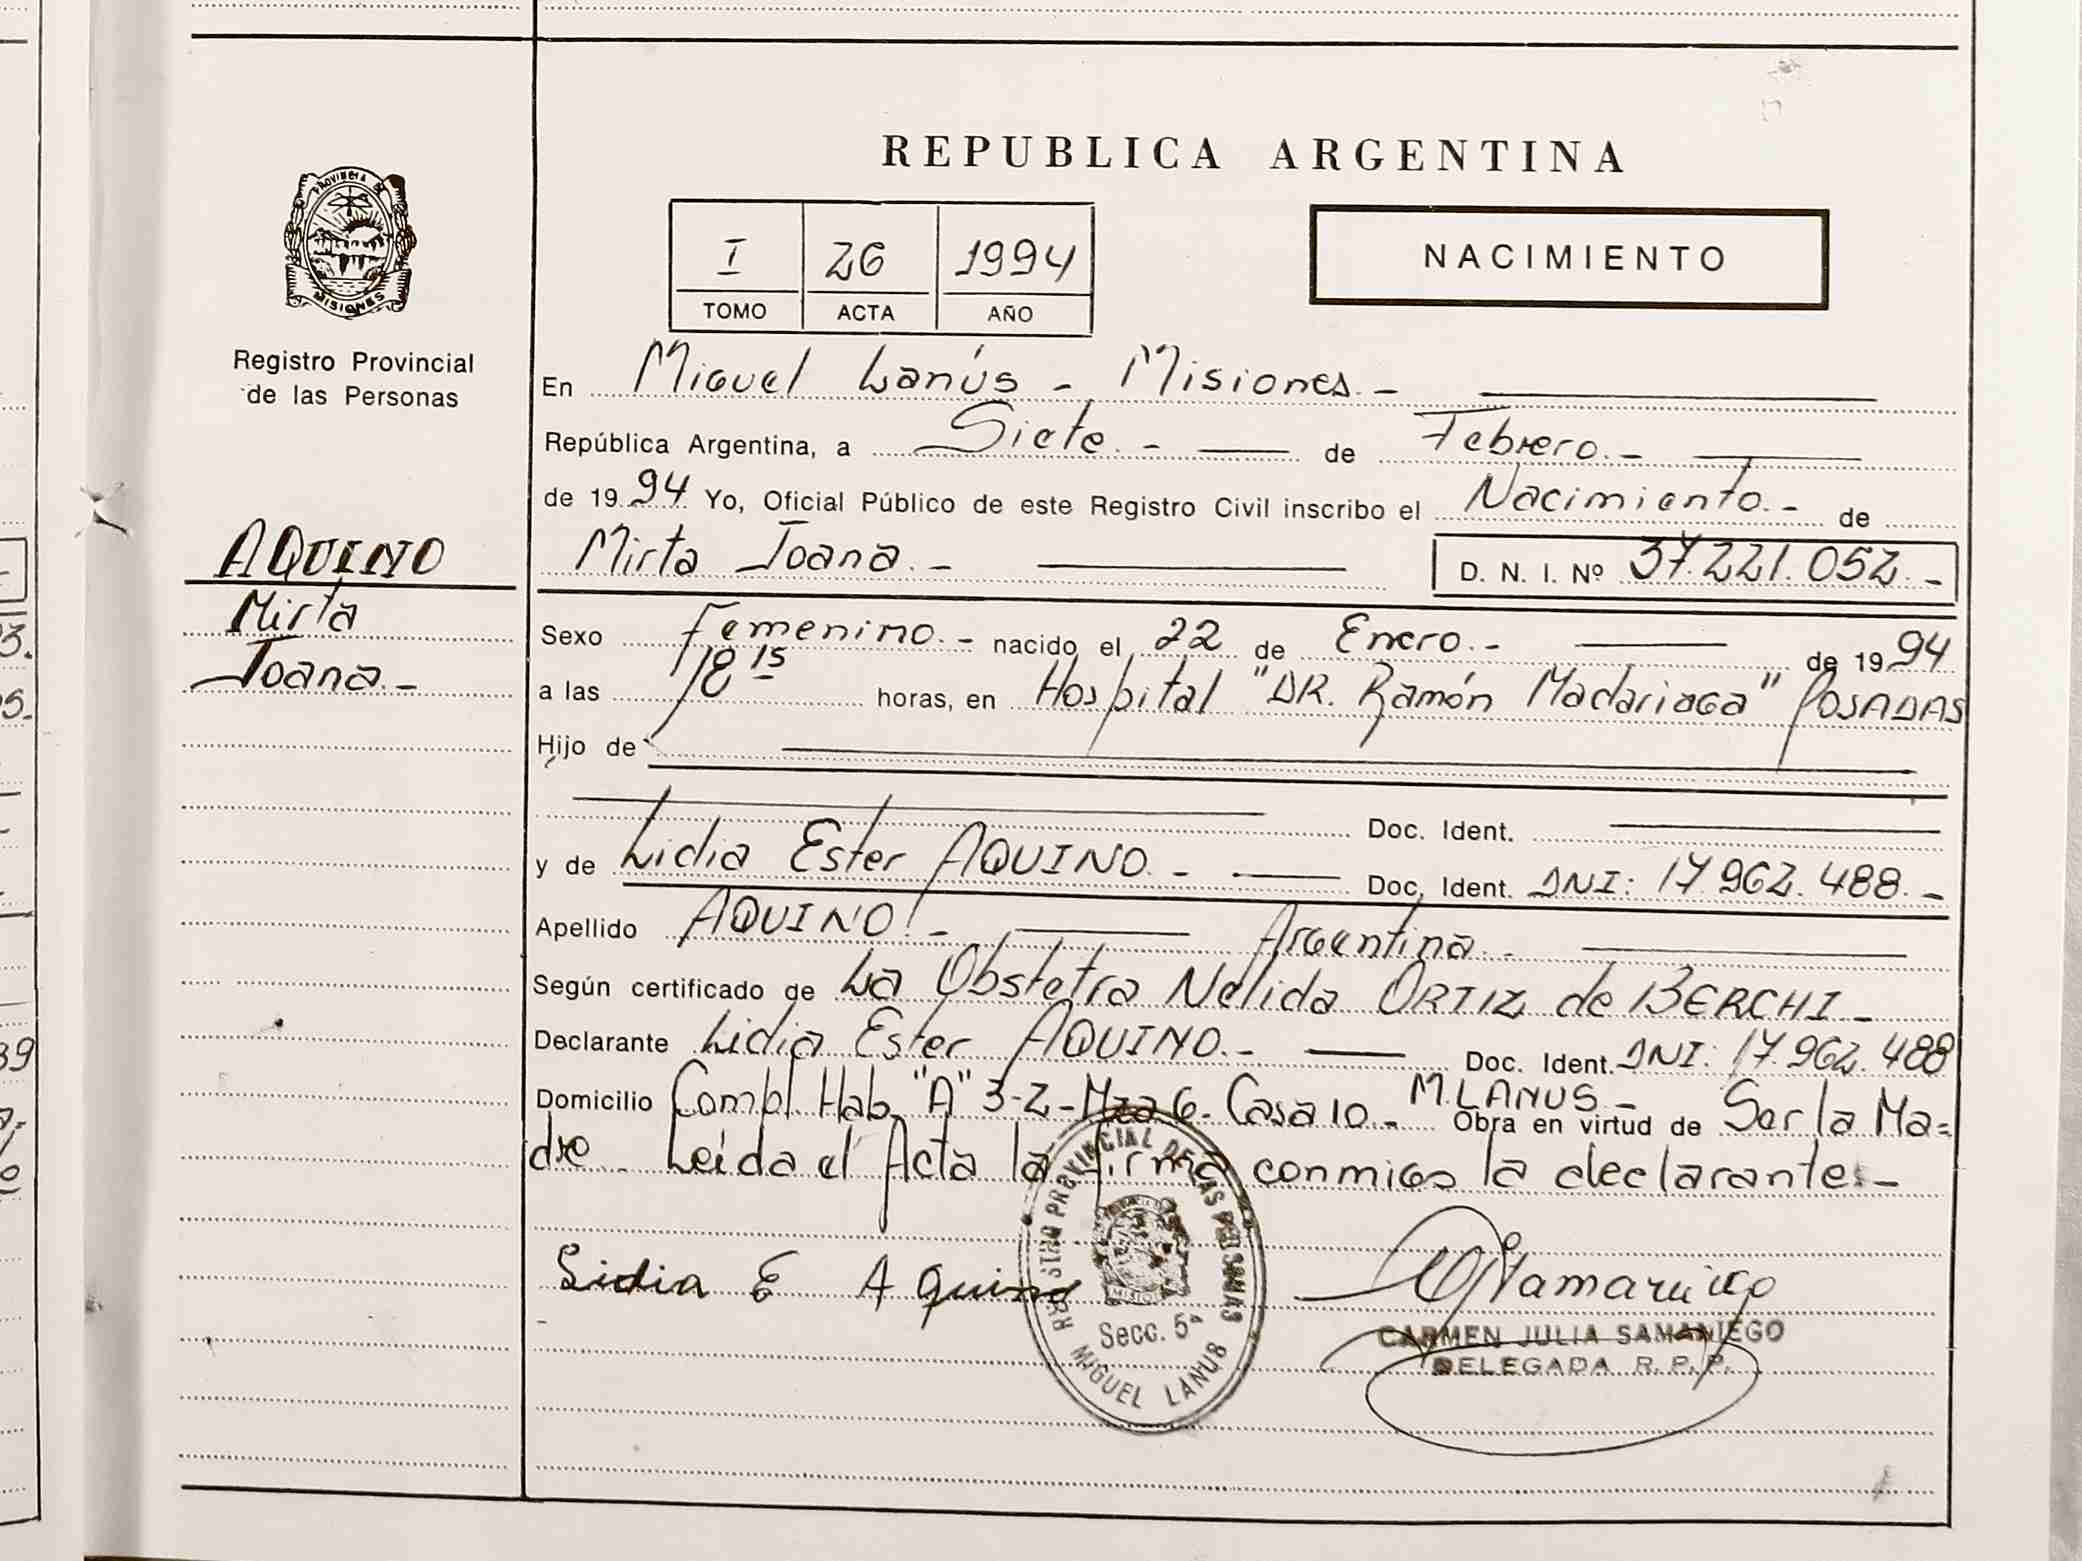 REPUBLICA ARGENTINA
PROVINCIA DE
MISIONES
Registro Provincial
de las Personas
I 26 1994
TOMO ACTA AÑO
NACIMIENTO
En Miguel Lanús - Misiones. -
República Argentina, a Siete. - de Febrero. -
de 19 94 Yo, Oficial Público de este Registro Civil inscribo el Nacimiento. - de
AQUINO
Mirta
Joana. -
Mirta Joana. - D. N. I. Nº 37.221.052. -
Sexo Femenino. - nacido el 22 de Enero. - de 19 94
a las 18 15 horas, en Hospital "DR. Ramón Madariaga" POSADAS
Hijo de
Doc. Ident.
y de Lidia Ester AQUINO. - Doc. Ident. DNI: 17.962.488. -
Apellido AQUINO. - Argentina. -
Según certificado de La Obstetra Nélida ORTIZ de BERCHI -
Declarante Lidia Ester AQUINO. - Doc. Ident. DNI: 17.962.488
Domicilio Compl Hab. "A" 3-2-Mza 6- Casa 10. - M. LANUS - Obra en virtud de Ser la Ma=
dre. Leída el Acta la firma conmigo la declarante. -
Lidia E Aquino
REGISTRO PROVINCIAL DE LAS PERSONAS
Secc. 5ª
MIGUEL LANUS
CARMEN JULIA SAMANIEGO
DELEGADA R. P. P.